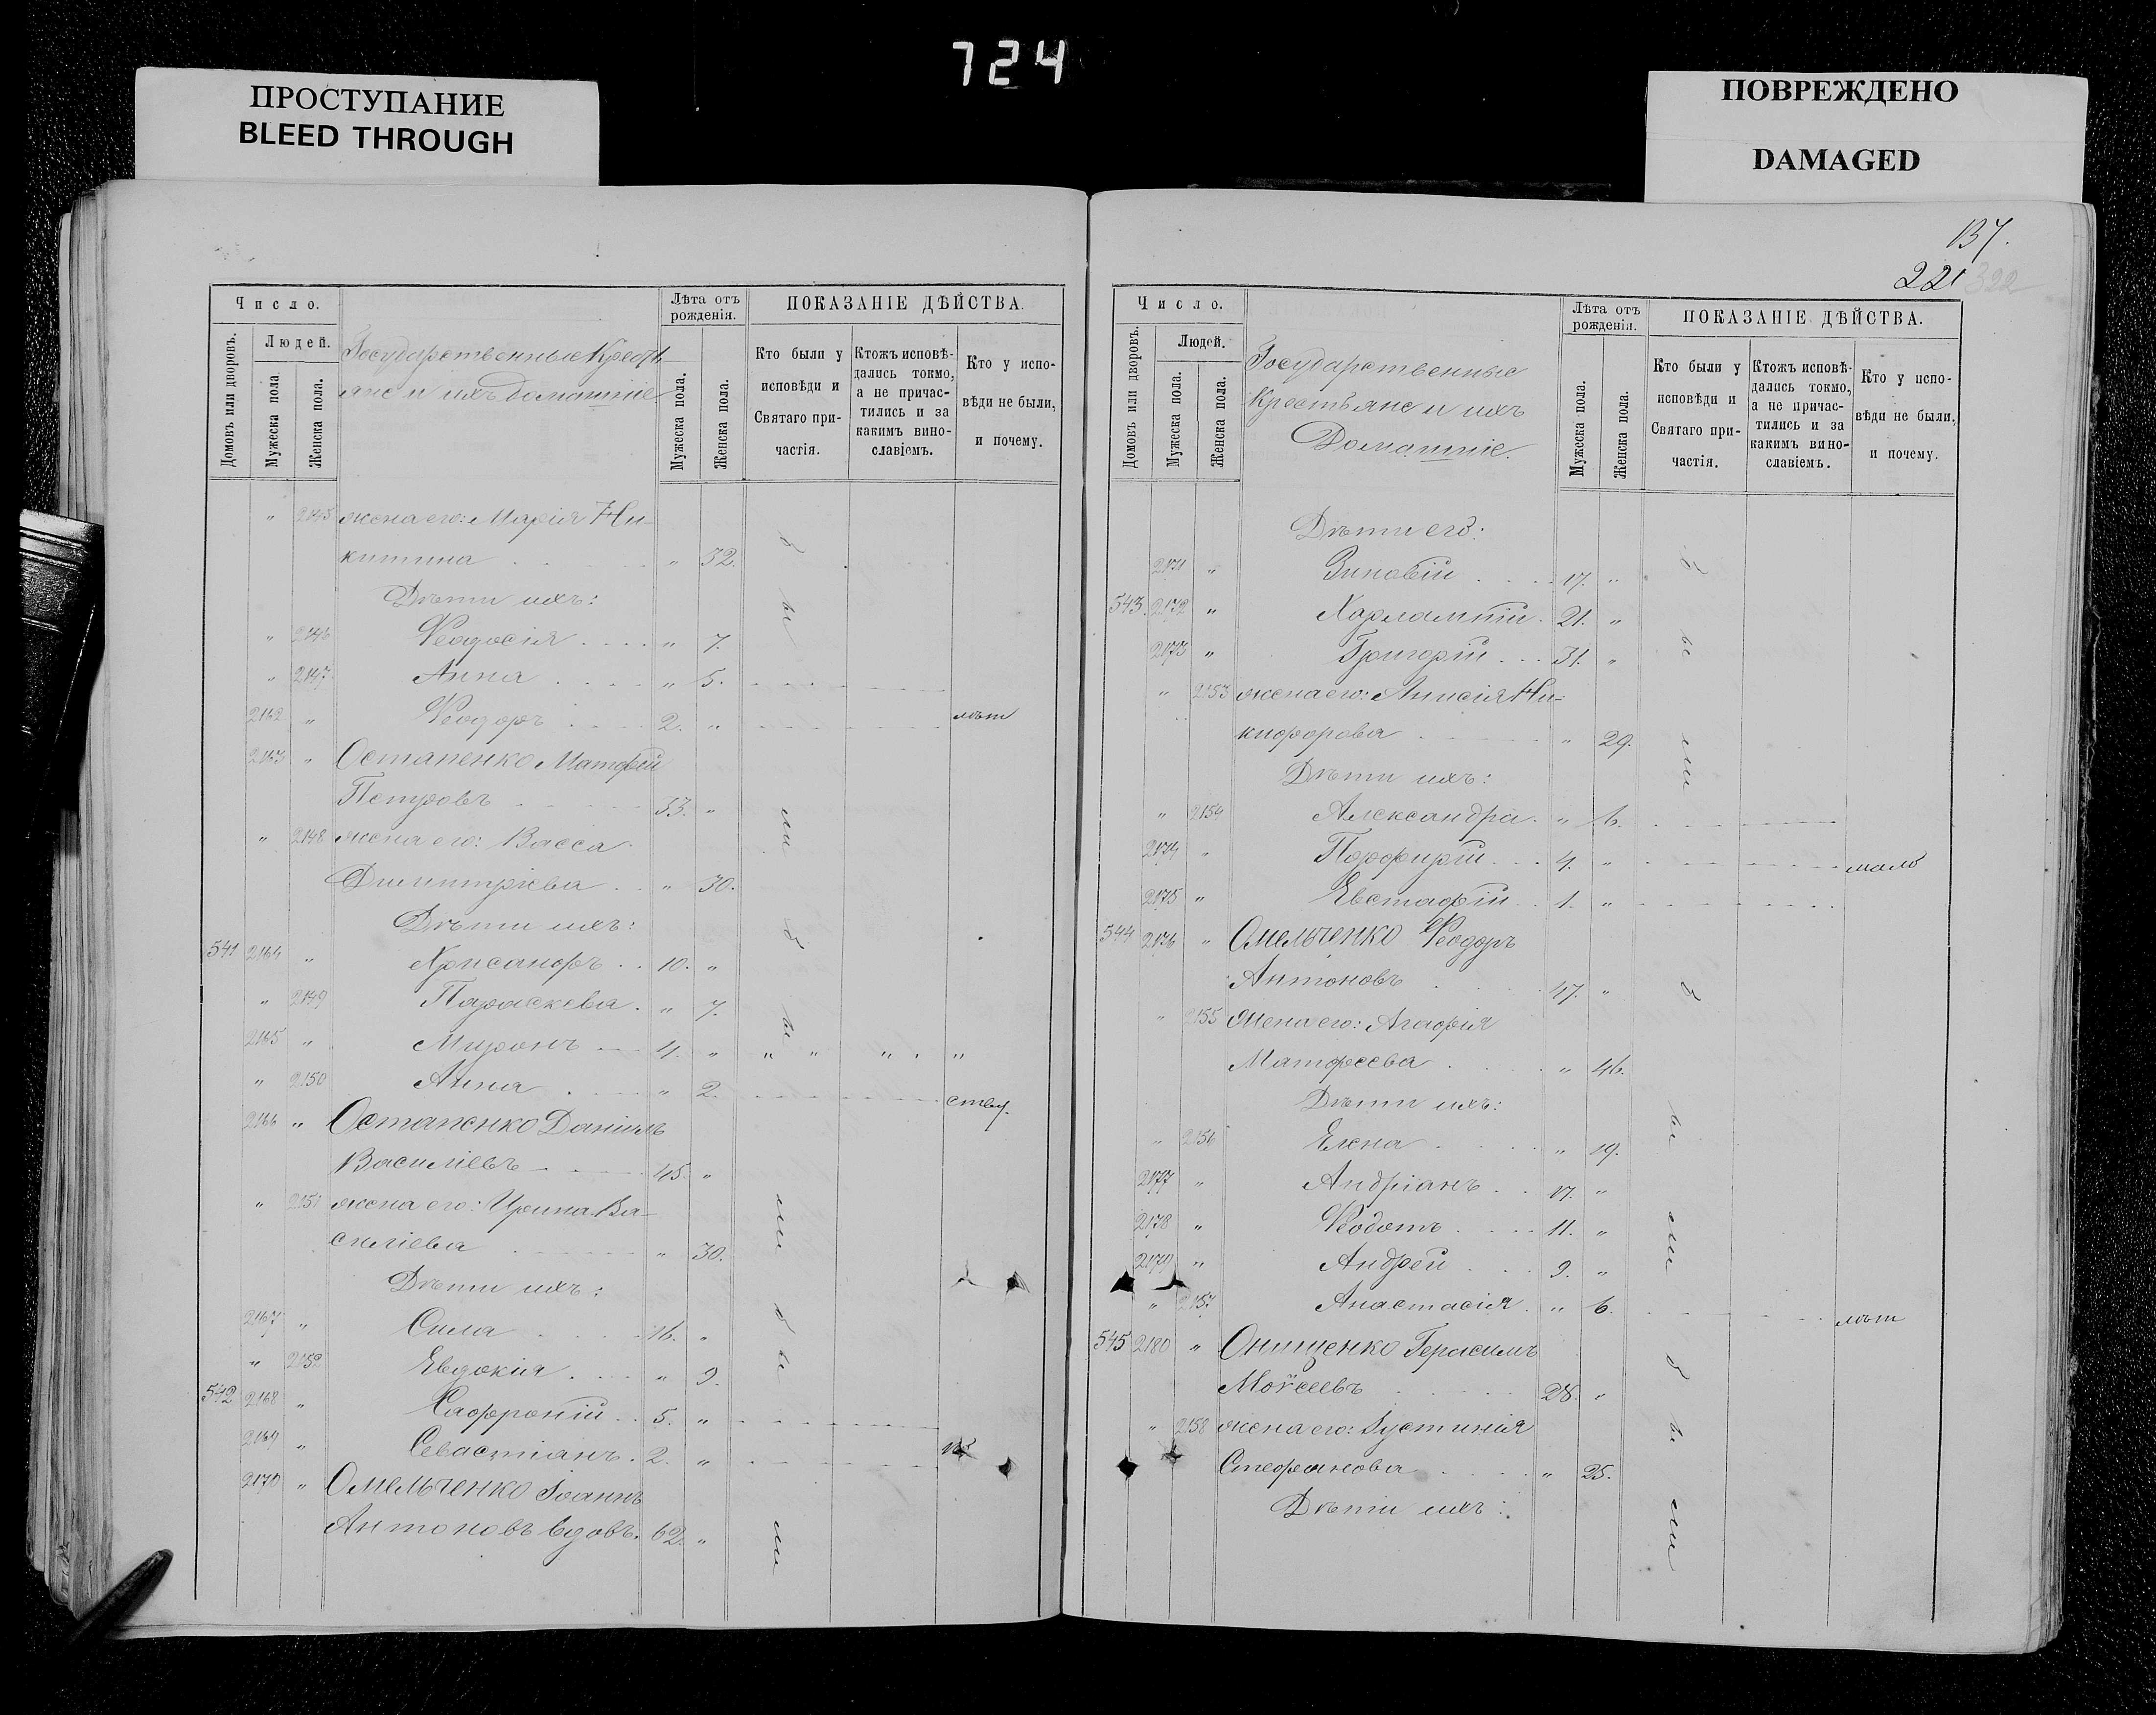 724
ПРОСТУПАНИЕ
BLEED THROUGH
ПОВРЕЖДЕНО
DAMAGED
Число.
Людей.
Домовъ или дворовъ.
Мужеска пола
Женска пола.
Государственные Крестьяне и ихъ домашніе
Лѣта отъ рожденія.
Мужеска пола.
Женска пола.
ПОКАЗАНІЕ ДѢЙСТВА.
Кто были у исповѣди и Святаго причастія.
Ктожъ исповѣдались токмо, а не причастились и за какимъ винославіемъ.
Кто у исповѣди не были, и почему.
" 2145 жена его: Марія Ни-
китина " 32.
Дѣти ихъ:
" 2146 Ѳеодосія " 7.
" 2147 Анна " 5.
2162 " Ѳеодоръ 2. " лѣт
2163 " Остапенко Матфей
Петровъ 33. "
" 2148 жена его: Васса
Димитріева " 30.
Дѣти ихъ:
541 2164 " Хрисанфъ 10. "
" 2149 Параскева " 7.
2165 " Миронъ 4. "
" 2150 Анна " 2. ству.
2166 " Остапенко Даніилъ
Василіевъ 45. "
" 2151 жена его: Ирина Ва-
силіева " 30.
Дѣти ихъ:
2167 " Сила 16. "
" 2152 Евдокія " 9.
542 2168 " Сафроній 5. "
2169 " Севастіанъ 2. "
2170 " Омельченко Іоаннъ
Антоновъ вдовъ. 62. "
бы
ли
бы
ли
бы
ли
137.
221 322
Число.
Людей.
Домовъ или дворовъ.
Мужеска пола.
Женска пола.
Государственные
Крестьяне и ихъ
Домашніе.
Лѣта отъ рожденія.
Мужеска пола.
Женска пола.
ПОКАЗАНІЕ ДѢЙСТВА.
Кто были у исповѣди и Святаго причастія.
Ктожъ исповѣдались токмо, а не причастились и за какимъ винославіемъ.
Кто у исповѣди не были, и почему.
Дѣти его:
2171 " Зиновій 17. "
543. 2172 " Харлампій 21. "
2173 " Григорій 31. "
" 2153 жена его: Анисія Ни-
кифорова " 29.
Дѣти ихъ:
" 2154 Александра " 6.
2174 " Порфирій 4. " мало
2175 " Евстафій 1. "
544 2176 " Омельченко Ѳеодоръ
Антоновъ 47. "
" 2155 Жена его: Агафія
Матфеева " 46.
Дѣти ихъ:
" 2156 Елена " 19.
2177 " Андріанъ 17. "
2178 " Ѳеодотъ 11. "
2179 " Андрей 9. "
" 2157 Анастасія " 6. лѣт
545 2180 " Онищенко Герасимъ
Моѵсеевъ 28. "
" 2158 жена его: Іустинія
Стефанова " 25.
Дѣти ихъ:
бы
ли
бы
ли
бы
ли